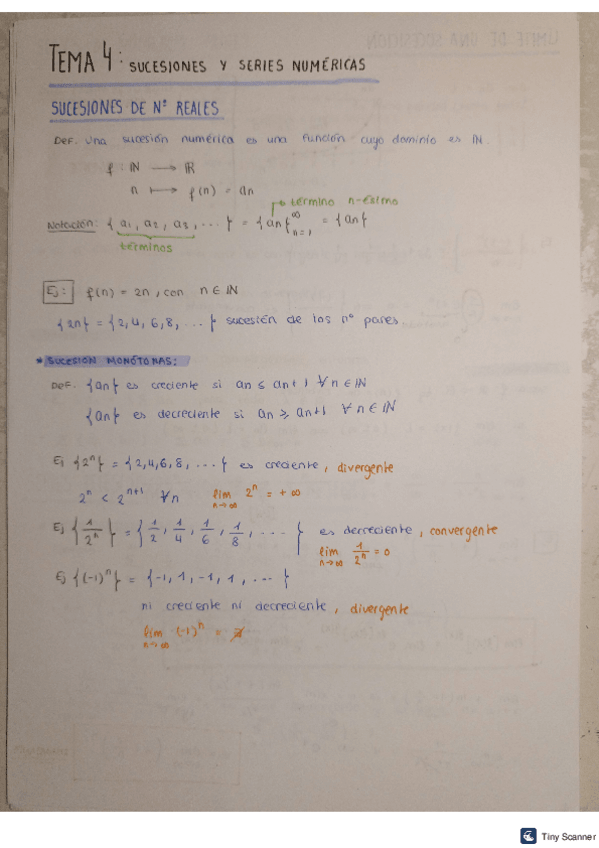 TEMA 4: SUCESIONES Y SERIES NUMÉRICAS
SUCESIONES DE Nº REALES
DEF. Una sucesión numérica es una función cuyo dominio es ℕ.
f: ℕ ⟶ ℝ
n ⟼ f(n) = an
término n-ésimo
Notación: {a₁, a₂, a₃, ...} = {an}∞n=1 = {an}
términos
Ej: f(n) = 2n, con n ∈ ℕ
{2n} = {2, 4, 6, 8, ...} sucesión de los nº pares
* SUCESIÓN MONÓTONAS:
DEF. {an} es creciente si an ≤ an+1 ∀n ∈ ℕ
{an} es decreciente si an ⩾ an+1 ∀n ∈ ℕ
Ej {2ⁿ} = {2, 4, 6, 8, ...} es creciente, divergente
2ⁿ < 2ⁿ⁺¹ ∀n lím n→∞ 2ⁿ = +∞
Ej {1/2ⁿ} = {1/2, 1/4, 1/6, 1/8, ...} es decreciente, convergente
lím n→∞ 1/2ⁿ = 0
Ej {(-1)ⁿ} = {-1, 1, -1, 1, ...}
ni creciente ni decreciente, divergente
lím n→∞ (-1)ⁿ = ∄
Tiny Scanner